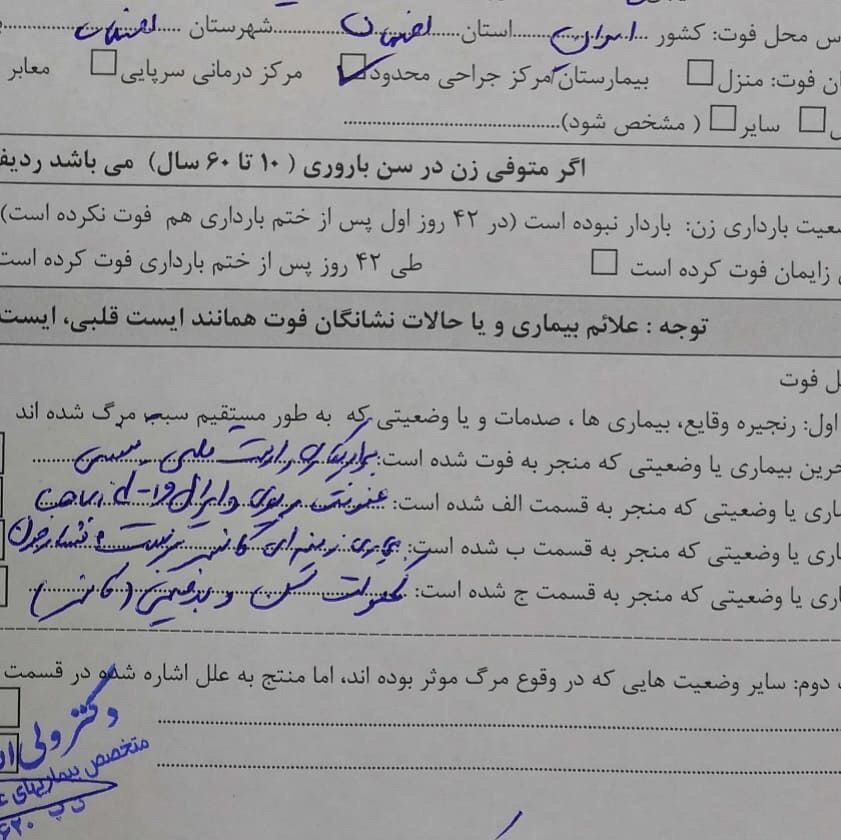 س محل فوت: کشور ایران استان اصفهان شهرستان اصفهان
ان فوت: منزل بیمارستان/مرکز جراحی محدود مرکز درمانی سرپایی معابر
ل سایر ( مشخص شود)
اگر متوفی زن در سن باروری ( ۱۰ تا ۶۰ سال) می باشد ردیف
ضعیت بارداری زن: باردار نبوده است (در ۴۲ روز اول پس از ختم بارداری هم فوت نکرده است)
زایمان فوت کرده است طی ۴۲ روز پس از ختم بارداری فوت کرده است
توجه : علائم بیماری و یا حالات نشانگان فوت همانند ایست قلبی، ایست
ل فوت
اول: زنجیره وقایع، بیماری ها ، صدمات و یا وضعیتی که به طور مستقیم سبب مرگ شده اند
خرین بیماری یا وضعیتی که منجر به فوت شده است: ایست قلبی
ماری یا وضعیتی که منجر به قسمت الف شده است: عفونت ریوی
ماری یا وضعیتی که منجر به قسمت ب شده است: بیماری زمینه ای کانسر و فشار خون
ماری یا وضعیتی که منجر به قسمت ج شده است: کهولت سن و (کانسر)
دوم: سایر وضعیت هایی که در وقوع مرگ موثر بوده اند، اما منتج به علل اشاره شده در قسمت
دکتر ولی ا
متخصص بیماریهای ع